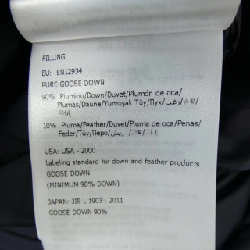 FILLING
EU: EN12934
PURE GOOSE DOWN
90% Piumino/Down/Duvet/Plumón de oca/
Plumas/Daune/Yumuşak Tüy/Пух/
10% Piuma/Feather/Duvet/Pluma de oca/Penas/
Feder/Tüy/Перо/
USA: USA - 2000
Labeling standard for down and feather products
GOOSE DOWN
(MINIMUM 90% DOWN)
JAPAN: JIS L 1903 : 2011
GOOSE DOWN 90%